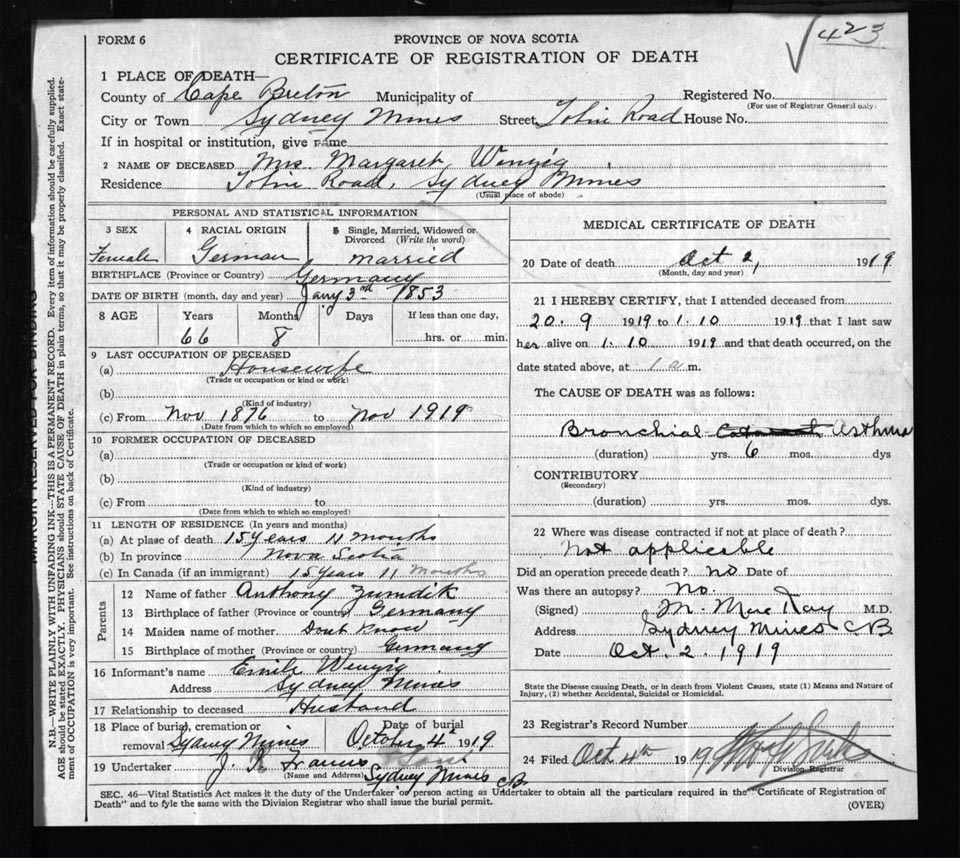 423
FORM 6
PROVINCE OF NOVA SCOTIA
CERTIFICATE OF REGISTRATION OF DEATH
1 PLACE OF DEATH—
County of Cape Breton Municipality of Registered No.
(For use of Registrar General only)
City or Town Sydney Mines Street Tobin Road House No.
If in hospital or institution, give name
2 NAME OF DECEASED Mrs. Margaret Wenzig
Residence Tobin Road, Sydney Mines
(Usual place of abode)
PERSONAL AND STATISTICAL INFORMATION
3 SEX 4 RACIAL ORIGIN 5 Single, Married, Widowed or Divorced (Write the word)
Female German married
BIRTHPLACE (Province or Country) Germany
DATE OF BIRTH (month, day and year) Jany 3rd 1853
8 AGE Years Months Days If less than one day,
66 8 hrs. or min.
9 LAST OCCUPATION OF DECEASED
(a) Housewife
(Trade or occupation or kind or work)
(b)
(Kind of industry)
(c) From Nov 1876 to Nov 1919
(Date from which to which so employed)
10 FORMER OCCUPATION OF DECEASED
(a)
(Trade or occupation or kind of work)
(b)
(Kind of industry)
(c) From to
(Date from which to which so employed)
11 LENGTH OF RESIDENCE (In years and months)
(a) At place of death 15 years 11 months
(b) In province Nova Scotia
(c) In Canada (if an immigrant) 15 years 11 months
Parents
12 Name of father Anthony Zumdik
13 Birthplace of father (Province or country) Germany
14 Maiden name of mother Dont Know
15 Birthplace of mother (Province or country) Germany
16 Informant's name Emile Wenzig
Address Sydney Mines
17 Relationship to deceased Husband
18 Place of burial, cremation or removal Sydney Mines
Date of burial October 4th 1919
19 Undertaker J. R. Francis
(Name and Address) Sydney Mines CB
MEDICAL CERTIFICATE OF DEATH
20 Date of death Oct 2, 1919
(Month, day and year)
21 I HEREBY CERTIFY, that I attended deceased from
20. 9 1919 to 1. 10 1919 that I last saw
her alive on 1. 10 1919 and that death occurred, on the
date stated above, at 1 a m.
The CAUSE OF DEATH was as follows:
Bronchial Asthma
(duration) yrs. 6 mos. dys
CONTRIBUTORY
(Secondary)
(duration) yrs. mos. dys.
22 Where was disease contracted if not at place of death?
Not applicable
Did an operation precede death? no Date of
Was there an autopsy? No.
(Signed) M. D.
Address Sydney Mines C.B.
Date Oct. 2. 1919
State the Disease causing Death, or in death from Violent Causes, state (1) Means and Nature of
Injury, (2) whether Accidental, Suicidal or Homicidal.
23 Registrar's Record Number
24 Filed Oct 4th 19
Division Registrar
SEC. 46—Vital Statistics Act makes it the duty of the Undertaker or person acting as Undertaker to obtain all the particulars required in the "Certificate of Registration of
Death" and to fyle the same with the Division Registrar who shall issue the burial permit.
(OVER)
MARGIN RESERVED FOR BINDING
N.B.—WRITE PLAINLY WITH UNFADING INK—THIS IS A PERMANENT RECORD. Every item of information should be carefully supplied.
AGE should be stated EXACTLY. PHYSICIANS should STATE CAUSE OF DEATH in plain terms, so that it may be properly classified. Exact state-
ment of OCCUPATION is very important. See instructions on back of Certificate.